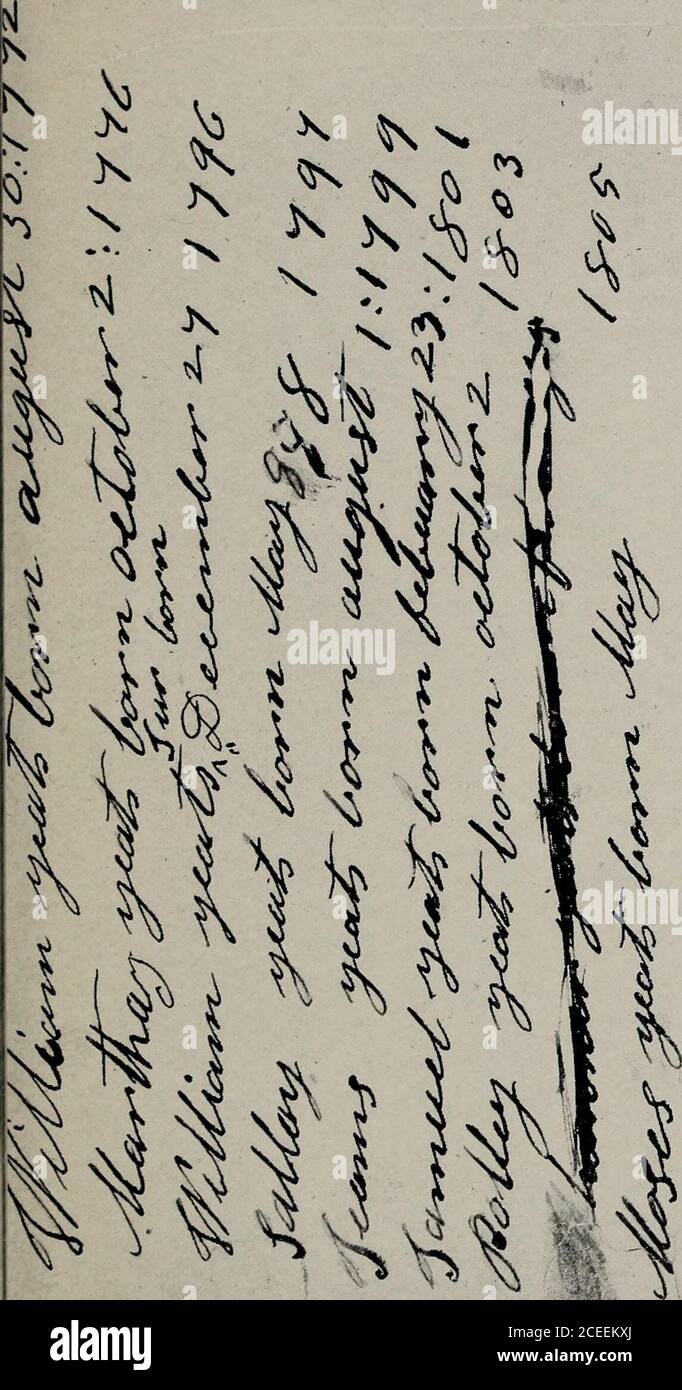 William yeats born august 30:1792
Marthay yeats born october 2:1776
Jur born
William yeats December 27 1796
Sallay yeats born May 8 1797
Jeams yeats born august 1:1799
Samuel yeats born febuary 23:1801
Polley yeats born october 2 1803
Moses yeats born May 1805
alamy
Image ID: 2CEEKXJ
www.alamy.com